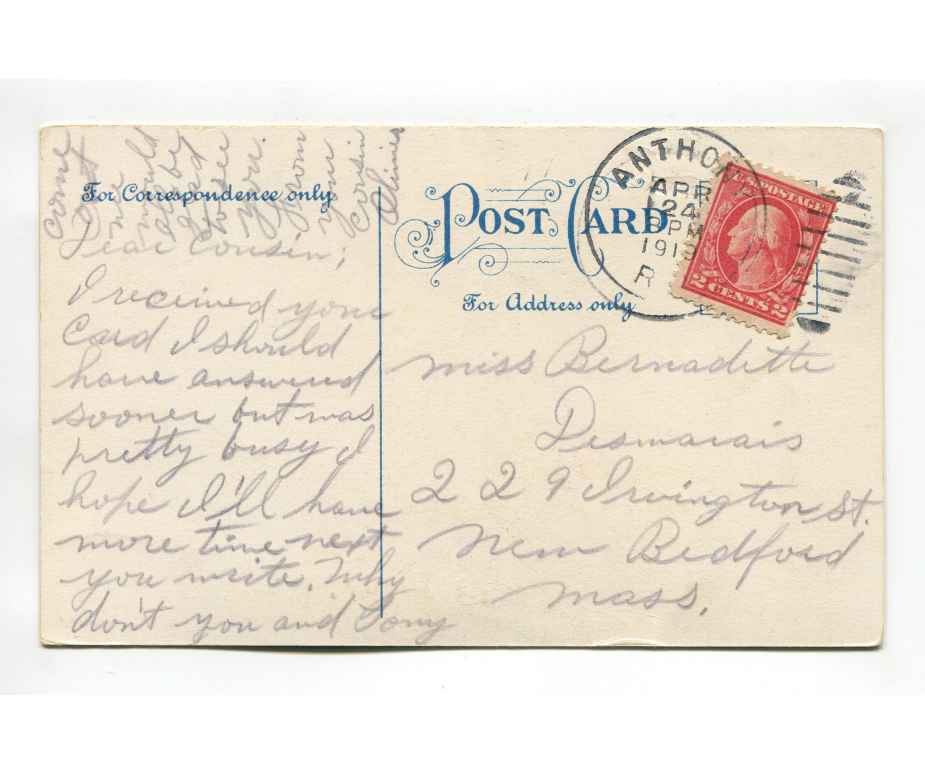 For Correspondence only
POST CARD
For Address only
ANTHONY
APR
24
PM
R
U.S. POSTAGE
2 CENTS 2
Dear Cousin;
I received your
Card I should
have answered
sooner but was
pretty busy I
hope I'll have
more time next
you write. Why
don't you and Tony
come
would
be
to see
you.
From
your
Cousin
Miss Bernadette
Desmarais
229 Irvington St.
New Bedford
Mass.